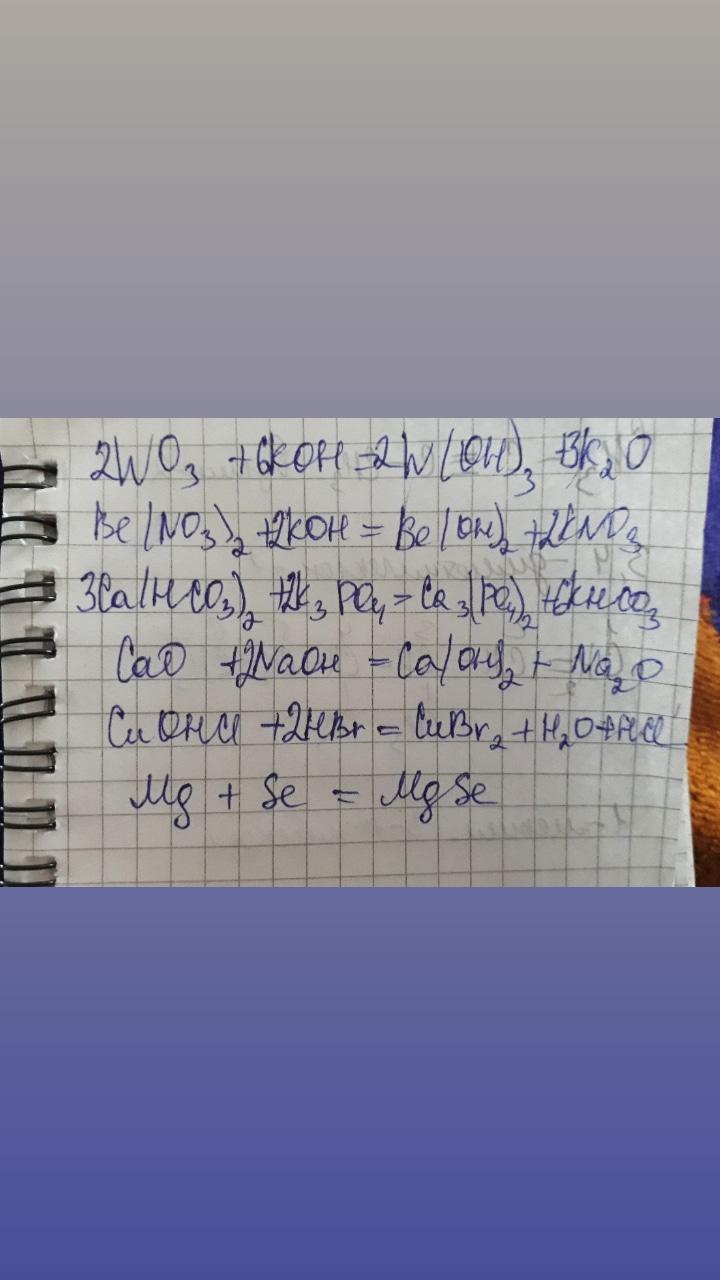 2WO₃ + 6KOH = 2W(OH)₃ + 3K₂O
Be(NO₃)₂ + 2KOH = Be(OH)₂ + 2KNO₃
3Ca(HCO₃)₂ + 2K₃PO₄ = Ca₃(PO₄)₂ + 6KHCO₃
CaO + 2NaOH = Ca(OH)₂ + Na₂O
CuOHCl + 2HBr = CuBr₂ + H₂O + HCl
Mg + Se = MgSe